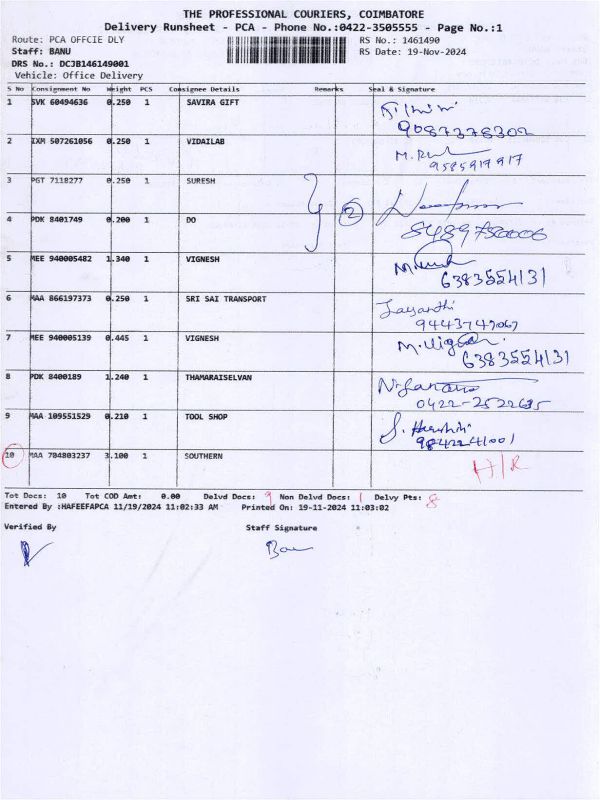 THE PROFESSIONAL COURIERS, COIMBATORE
Delivery Runsheet - PCA - Phone No.:0422-3505555 - Page No.:1
Route: PCA OFFCIE DLY RS No.: 1461490
Staff: BANU RS Date: 19-Nov-2024
DRS No.: DCJB146149001
Vehicle: Office Delivery
S No Consignment No Weight PCS Consignee Details Remarks Seal & Signature
1 SVK 60494636 0.250 1 SAVIRA GIFT
9087378302
2 IXM 507261056 0.250 1 VIDAILAB
9585917917
3 PGT 7118277 0.250 1 SURESH
2
4 PDK 8401749 0.200 1 DO
5 MEE 940005482 1.340 1 VIGNESH
6383554131
6 MAA 866197373 0.250 1 SRI SAI TRANSPORT Jayanthi
9443747067
7 MEE 940005139 0.445 1 VIGNESH
6383554131
8 PDK 8400189 1.240 1 THAMARAISELVAN
0422-2522635
9 MAA 109551529 0.210 1 TOOL SHOP
9842241001
10 MAA 704803237 3.100 1 SOUTHERN H/R
Tot Docs: 10 Tot COD Amt: 0.00 Delvd Docs: 9 Non Delvd Docs: 1 Delvy Pts: 8
Entered By :HAFEEFAPCA 11/19/2024 11:02:33 AM Printed On: 19-11-2024 11:03:02
Verified By Staff Signature